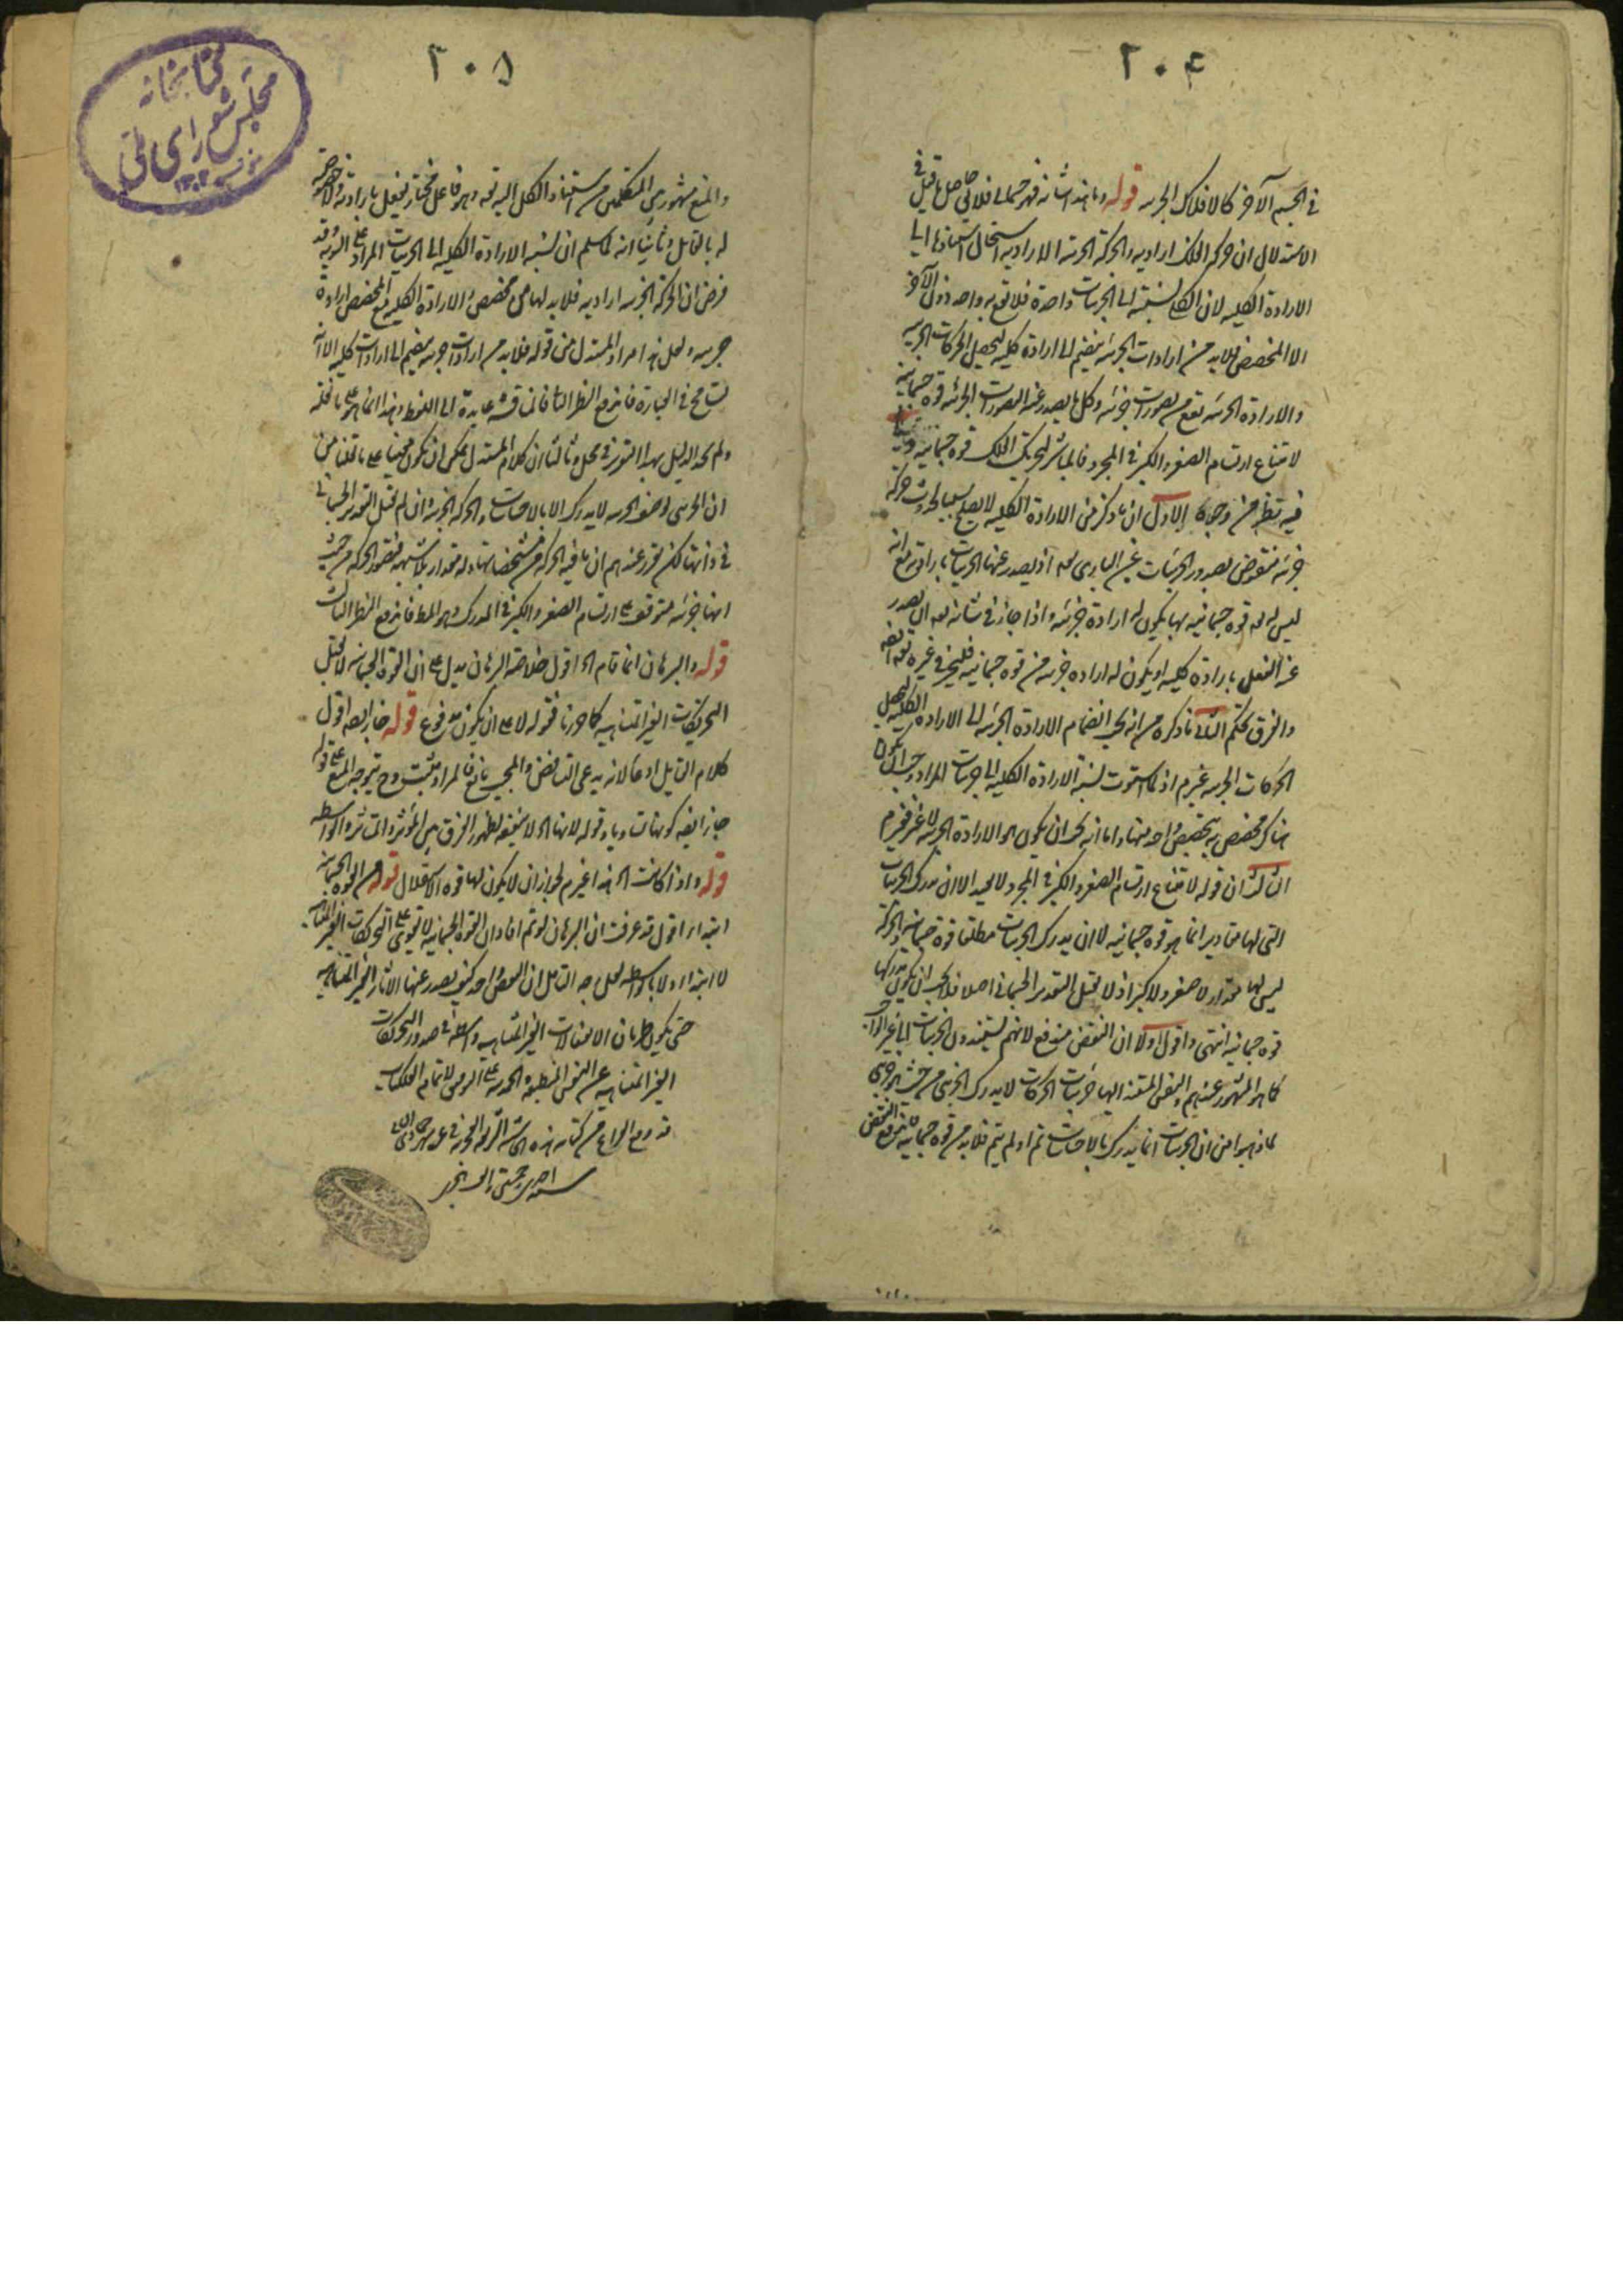 ٢٠٤
في الجسم الآخر كالافلاك الجزئيه قوله وما هذا شانه فهو جسماني فلا في حاصل ما قيل في
الاستدلال ان حركه الفلك اراديه والحركة الجزئيه الاراديه استحال استنادها الى
الارادة الكليه لان الكلي نسبته الى الجزئيات واحدة فلا تقع به واحد دون الآخر
الا المخصص فلابد من ارادات الجزئيه ينضم الى ارادة كليه لتحصل الحركات الجزئيه
والارادة الجزئيه تقع من تصورات جزئيه وكل ما يصدر عنه التصورات الجزئيه قوه جسمانيه
لامتناع ارتسام الصغر والكبر في المجرد فالمباشر لتحريك الفلك قوه جسمانيه
فيه نظر من وجوه الاول ان ما ذكر من الارادة الكليه لا يصلح سببا لحدوث حركة
جزئيه منقوض بصدور الجزئيات عن الباري تعه اذ يصدر عنها الجزئيات بارادته مع انه
ليس له تعه قوه جسمانيه بها يكون له ارادة جزئيه واذا جاز في شانه تعه ان يصدر
عنه الفعل بارادة كليه او يكون له اراده جزئيه من قوه جسمانيه فليجز في غيره تعه ايضه
والفرق تحكم الثاني ما ذكره من انه يجب انضمام الارادة الجزئيه الى الاراده الكليه ليحصل
الحركات الجزئيه غير م اذ لما استوت نسبة الارادة الكليه الى جزئيات المراد وجب ان يكون
هناك مخصص به يتخصص واحد منها واما انه يجب ان يكون هو الارادة الجزئيه لا غير فغير م
الثالث ان قوله لامتناع ارتسام الصغر والكبر في المجرد لا يفيد الا ان مدرك الجزئيات
التي لها مقادير انما هو قوه جسمانيه لا ان مدرك الجزئيات مطلقا قوة جسمانيه والحركة
ليس لها مقدار لا صغر ولا كبر اذ لا تقبل التقدير الجسماني اصلا فلا يجب ان يكون مدركها
قوه جسمانيه انتهى واقول اولا ان النقض مندفع لانهم يسندون الجزئيات الى غير الواجب
كما هو المشهور عندهم والنفس المستند اليها جزئيات الحركات لا يدرك الجزئي من حيث هو جزئي
لما ذهبوا من ان الجزئيات انما يدرك بالالات تم او لم يتم فلابد من قوه جسمانيه فاندفع النقض
٢٠٥
والمنع مشهور بين المتكلمين من استناد الكل اليه تعه وهو فاعل مختار يفعل بارادته
له بالقابل وثانيا انه لما سلم ان نسبة الارادة الكليه الى الجزئيات المراد على السويه وقد
فرض ان الحركة الجزئيه اراديه فلابد لها من مخصص والارادة الكليه مع المخصص ارادة
جزئيه ولعل هذا مراد المستدل من قوله فلابد من ارادات جزئيه ينضم الى ارادات كليه الا انه
تسامح في العبارة فاندفع النظر الثاني فالمناقشه عايدة الى اللفظ وهذا انما هو على ما نقله
ولم نجد الدليل بهذا التقرير في محل وثالثا ان كلام المستدل يمكن ان يكون مبنيا على ما قلنا من
ان الجزئي من حيث هو جزئي لا يدرك الا بالالات والحركه الجزئيه وان لم تقبل التقدير الجسماني
في ذاتها لكن تقرر عندهم ان ما فيه الحركه من مشخصاتها وله مقدار فلا شبهه فتصور الحركه من حيث
انها جزئيه متوقف على ارتسام الصغر والكبر في المدرك وهو المط فاندفع النظر الثالث
قوله والبرهان انما قام الخ اقول خلاصة البرهان يدل على ان القوة الجسمانيه لا تقبل
التحريكات الغير المتناهيه كما حررنا فقوله لا على ان يكون مدفوع قوله جاز ايضه اقول
كلام القايل ادعا لانه يدعي التناقض والمجيب مانع فالمراد مثبت وح يتوجه المنع على قوله
جاز ايضه كونها متناهيا وقوله لانها الخ لا ينفعه لظهور الفرق بين المؤثر والمتاثر والواسطه
قوله واذا كانت الخ هذا غير م لجواز ان لا يكون لها قوه الاستقلال قوله من القوه الجسمانيه
ابتداء اقول قد عرفت ان البرهان لو تم افاد ان القوة الجسمانيه لا تقوى على التحريكات الغير المتناهيه
لا ابتداء ولا بواسطه ولعل وجه التامل ان المحض واحد كيف يصدر عنها الاثار الغير المتناهيه
حتى يكون طريان الانفعالات الغير المتناهيه واسطه في صدور التحريكات
الغير المتناهيه عن النفس المنطبعه الحمد لله على التوفيق لاتمام الكتاب
قد وقع الفراغ من كتابه هذه الحاشيه الشريفه في
سنه احدى
كتابخانه
مجلس شورای ملی